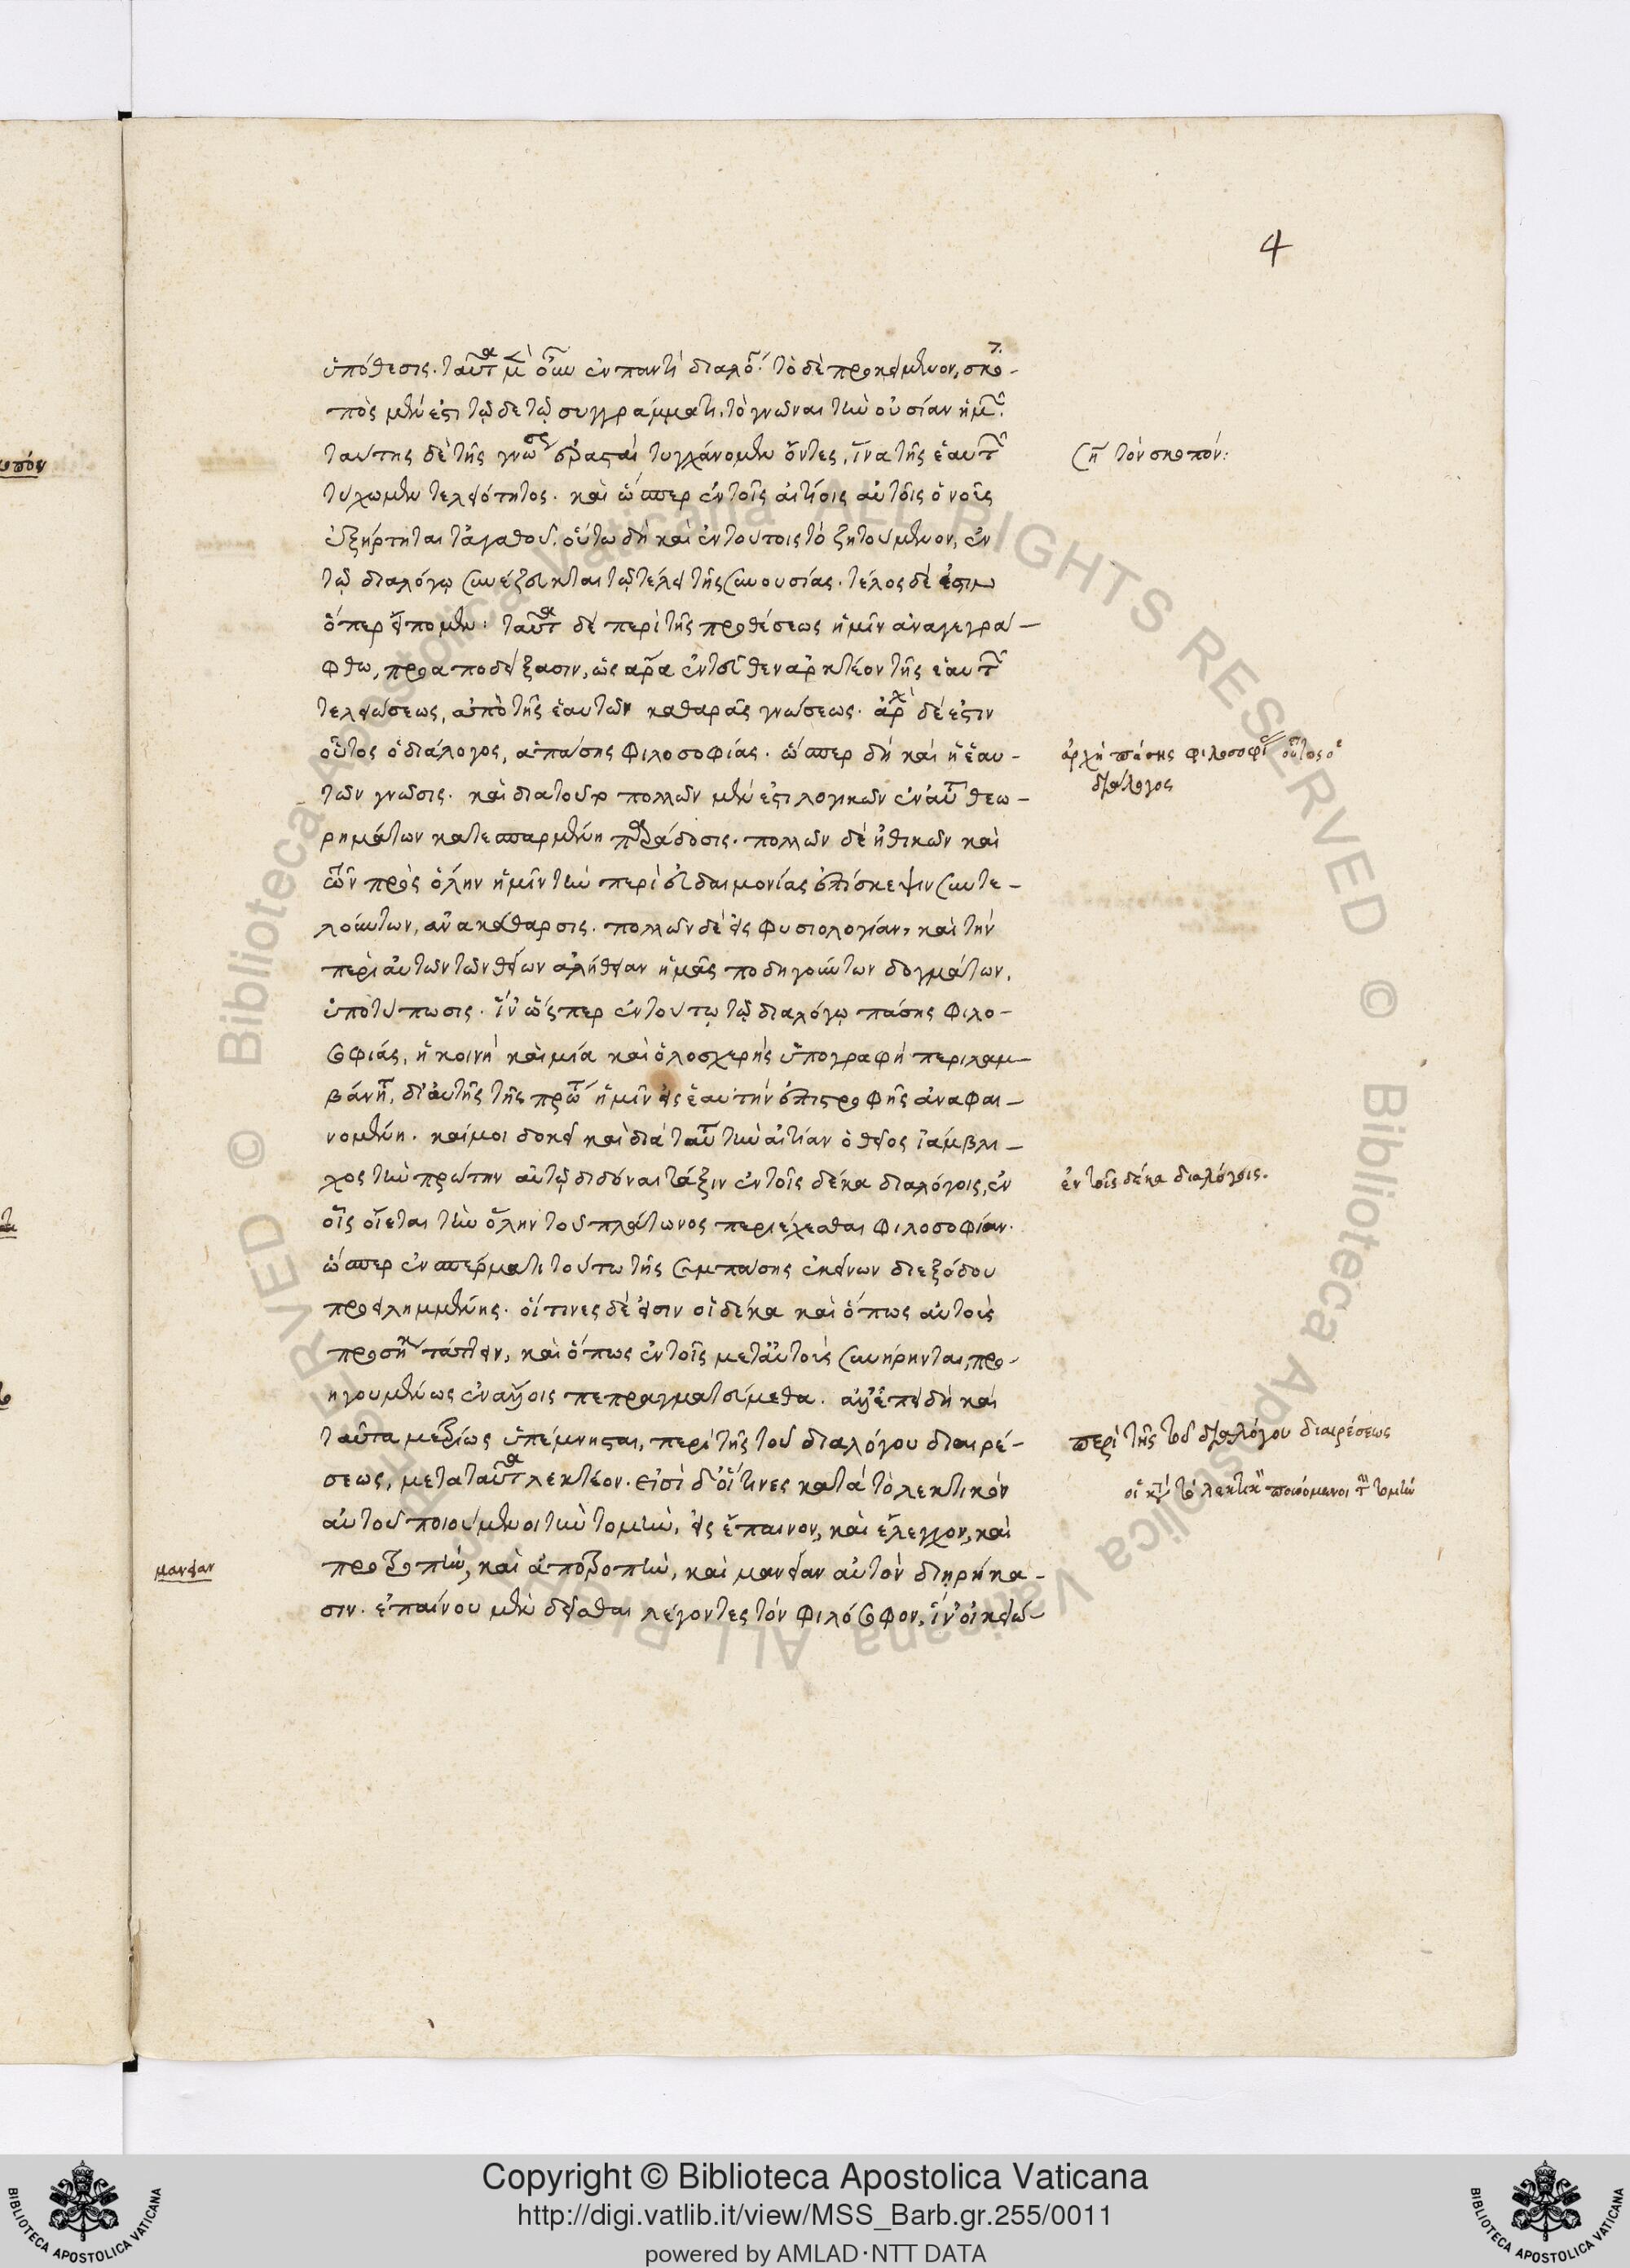 4
ὑπόθεσις. ταῦτα μὲν οὖν ἐν παντὶ διαλόγῳ. τὸ δὲ προκείμενον, σκο-
πὸς μέν ἐστι τῷδε τῷ συγγράμματι, τὸ γνῶναι τὴν οὐσίαν ἡμῶν.
ταύτης δὲ τῆς γνώσεως ἐρασταὶ τυγχάνομεν ὄντες, ἵνα τῆς ἑαυτῶν
τύχωμεν τελειότητος. καὶ ὥσπερ ἐν τοῖς αἰτίοις αὐτοῖς ὁ νοῦς
ἐξήρτηται τἀγαθοῦ. οὕτω δὴ καὶ ἐν τούτοις τὸ ζητούμενον, ἐν
τῷ διαλόγῳ συνέζευκται τῷ τέλει τῆς συνουσίας. τέλος δέ ἐστιν
ὅπερ εἴπομεν: ταῦτα δὲ περὶ τῆς προθέσεως ἡμῖν ἀναγεγρά-
φθω, προαποδείξασιν, ὡς ἄρα ἐντεῦθεν ἀρκτέον τῆς ἑαυτῶν
τελειώσεως, ἀπὸ τῆς ἑαυτῶν καθαρᾶς γνώσεως. ἀρχὴ δέ ἐστιν
οὗτος ὁ διάλογος, ἁπάσης φιλοσοφίας. ὥσπερ δὴ καὶ ἡ ἑαυ-
τῶν γνῶσις. καὶ διὰ τοῦτο πολλῶν μέν ἐστι λογικῶν ἐν αὐτῷ θεω-
ρημάτων κατεσπαρμένη παράδοσις. πολλῶν δὲ ἠθικῶν καὶ
τῶν πρὸς ὅλην ἡμῖν τὴν περὶ εὐδαιμονίας ἐπίσκεψιν συντε-
λούντων, ἀνακάθαρσις. πολλῶν δὲ εἰς φυσιολογίαν, καὶ τὴν
περὶ αὐτῶν τῶν θείων ἀλήθειαν ἡμᾶς ποδηγούντων δογμάτων,
ὑποτύπωσις. ἵν' ὥσπερ ἐν τούτῳ τῷ διαλόγῳ πάσης φιλο-
σοφίας, ἡ κοινὴ καὶ μία καὶ ὁλοσχερὴς ὑπογραφὴ περιλαμ-
βάνηται, δι' αὐτῆς τῆς πρώτης ἡμῖν εἰς ἑαυτὴν ἐπιστροφῆς ἀναφαι-
νομένη. καί μοι δοκεῖ καὶ διὰ ταύτην τὴν αἰτίαν ὁ θεῖος ἰάμβλι-
χος τὴν πρώτην αὐτῷ διδόναι τάξιν ἐν τοῖς δέκα διαλόγοις, ἐν
οἷς οἴεται τὴν ὅλην τοῦ πλάτωνος περιέχεσθαι φιλοσοφίαν.
ὥσπερ ἐν σπέρματι τούτῳ τῆς συμπάσης ἐκείνων διεξόδου
προειλημμένης. οἵτινες δέ εἰσιν οἱ δέκα καὶ ὅπως αὐτοὺς
προσήκει τάττειν, καὶ ὅπως ἐν τοῖς μετ' αὐτοὺς συνῄρηνται, προ-
ηγουμένως ἐν ἄλλοις πεπραγματεύμεθα. ἀλλ' ἐπειδὴ καὶ
ταῦτα μετρίως ὑπέμνησται, περὶ τῆς τοῦ διαλόγου διαιρέ-
σεως, μετὰ ταῦτα λεκτέον. εἰσὶ δ' οἵτινες κατὰ τὸ λεκτικὸν
αὐτοῦ ποιούμενοι τὴν τομὴν, εἰς ἔπαινον, καὶ ἔλεγχον, καὶ
προτροπὴν, καὶ ἀποτροπὴν, καὶ μανείαν αὐτὸν διῃρήκα-
σιν. ἐπαίνου μὲν δεῖσθαι λέγοντες τὸν φιλόσοφον, ἵν' οἰκειώ-
ση τὸν σκοπόν:
ἀρχὴ πάσης φιλοσοφίας ἐστὶ οὗτος ὁ
διάλογος
ἐν τοῖς δέκα διαλόγοις.
περὶ τῆς τοῦ διαλόγου διαιρέσεως
οἱ κατὰ τὸ λεκτικὸν ποιούμενοι τὴν τομὴν
μανείαν
Copyright © Biblioteca Apostolica Vaticana
http://digi.vatlib.it/view/MSS_Barb.gr.255/0011
powered by AMLAD·NTT DATA